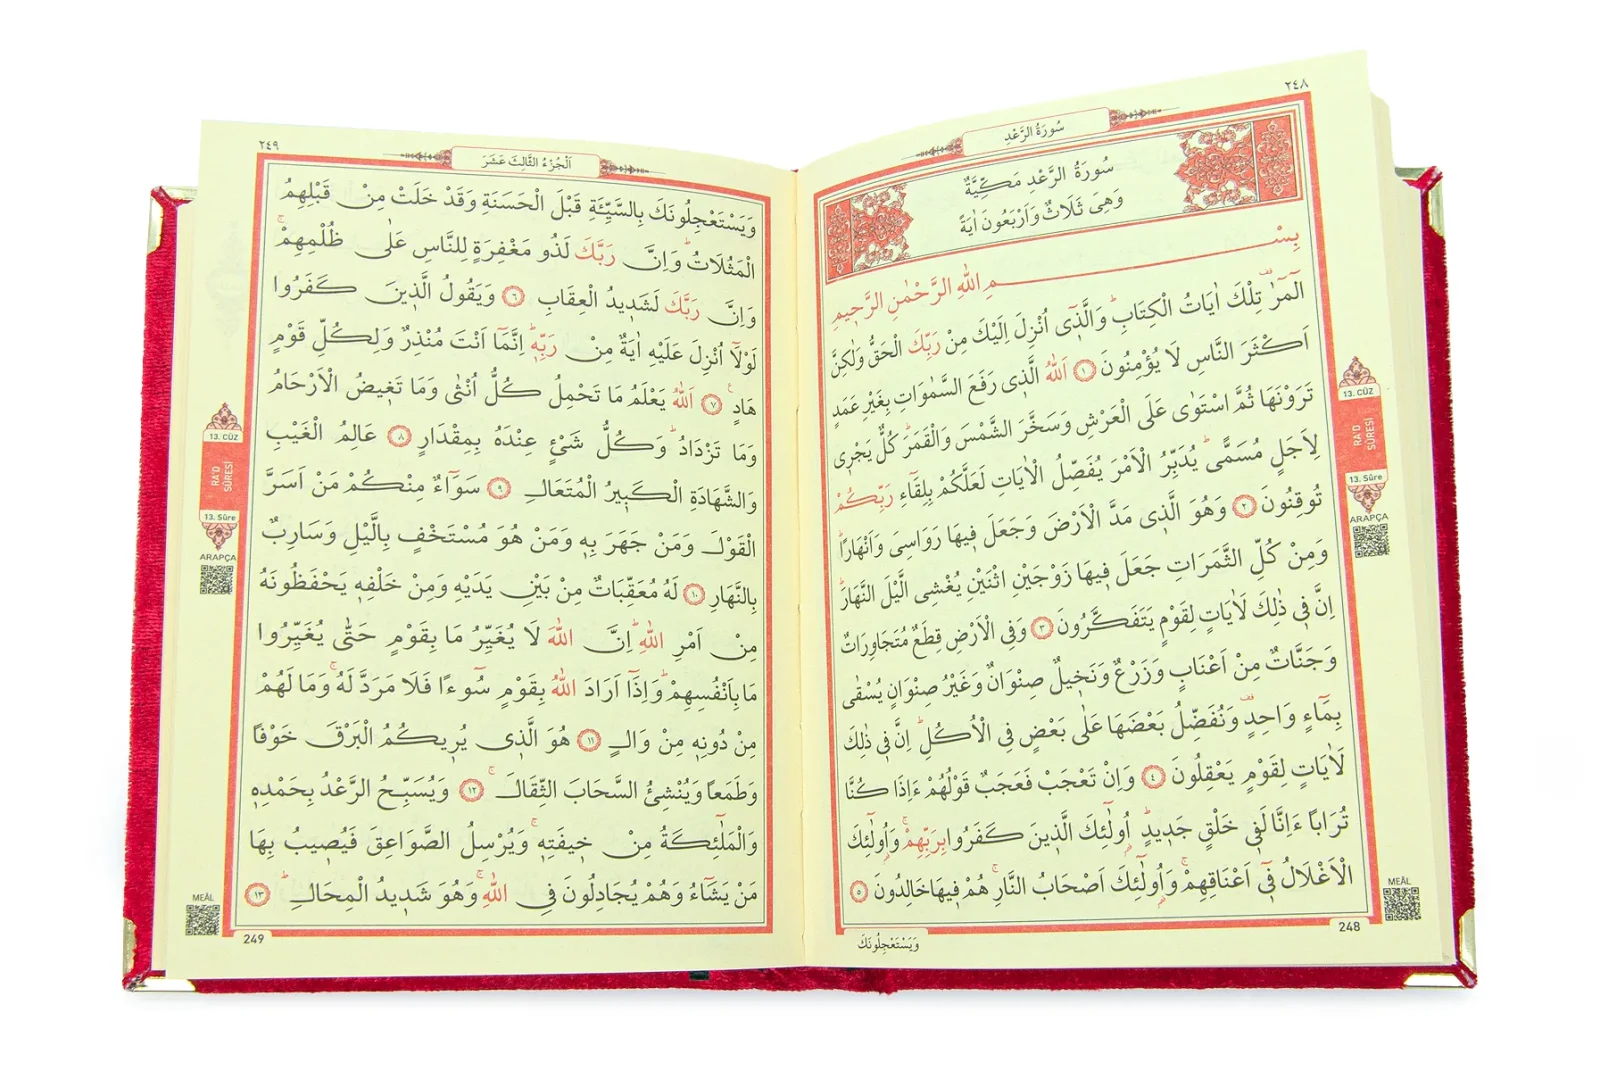 ٢٤٨
سُورَةُ الرَّعْدِ
سُورَةُ الرَّعْدِ مَكِّيَّةٌ
وَهِيَ ثَلَاثٌ وَاَرْبَعُونَ اٰيَةً
بِسْمِ اللّٰهِ الرَّحْمٰنِ الرَّحٖيمِ
الٓمٓرٰ تِلْكَ اٰيَاتُ الْكِتَابِ وَالَّذٖٓى اُنْزِلَ اِلَيْكَ مِنْ رَبِّكَ الْحَقُّ وَلٰكِنَّ
اَكْثَرَ النَّاسِ لَا يُؤْمِنُونَ ١ اَللّٰهُ الَّذٖى رَفَعَ السَّمٰوَاتِ بِغَيْرِ عَمَدٍ
تَرَوْنَهَا ثُمَّ اسْتَوٰى عَلَى الْعَرْشِ وَسَخَّرَ الشَّمْسَ وَالْقَمَرَ كُلٌّ يَجْرٖى
لِاَجَلٍ مُسَمًّى يُدَبِّرُ الْاَمْرَ يُفَصِّلُ الْاٰيَاتِ لَعَلَّكُمْ بِلِقَٓاءِ رَبِّكُمْ
تُوقِنُونَ ٢ وَهُوَ الَّذٖى مَدَّ الْاَرْضَ وَجَعَلَ فٖيهَا رَوَاسِىَ وَاَنْهَارًا
وَمِنْ كُلِّ الثَّمَرَاتِ جَعَلَ فٖيهَا زَوْجَيْنِ اثْنَيْنِ يُغْشِى الَّيْلَ النَّهَارَ
اِنَّ فٖى ذٰلِكَ لَاٰيَاتٍ لِقَوْمٍ يَتَفَكَّرُونَ ٣ وَفِى الْاَرْضِ قِطَعٌ مُتَجَاوِرَاتٌ
وَجَنَّاتٌ مِنْ اَعْنَابٍ وَزَرْعٌ وَنَخٖيلٌ صِنْوَانٌ وَغَيْرُ صِنْوَانٍ يُسْقٰى
بِمَٓاءٍ وَاحِدٍ وَنُفَضِّلُ بَعْضَهَا عَلٰى بَعْضٍ فِى الْاُكُلِ اِنَّ فٖى ذٰلِكَ
لَاٰيَاتٍ لِقَوْمٍ يَعْقِلُونَ ٤ وَاِنْ تَعْجَبْ فَعَجَبٌ قَوْلُهُمْ ءَاِذَا كُنَّا
تُرَابًا ءَاِنَّا لَفٖى خَلْقٍ جَدٖيدٍ اُولٰٓئِكَ الَّذٖينَ كَفَرُوا بِرَبِّهِمْ وَاُولٰٓئِكَ
الْاَغْلَالُ فٖٓى اَعْنَاقِهِمْ وَاُولٰٓئِكَ اَصْحَابُ النَّارِ هُمْ فٖيهَا خَالِدُونَ ٥
وَيَسْتَعْجِلُونَكَ
248
13. CÜZ
RA'D SÛRESİ
13. Sûre
ARAPÇA
MEÂL
٢٤٩
اَلْجُزْءُ الثَّالِثَ عَشَرَ
وَيَسْتَعْجِلُونَكَ بِالسَّيِّئَةِ قَبْلَ الْحَسَنَةِ وَقَدْ خَلَتْ مِنْ قَبْلِهِمُ
الْمَثُلَاتُ وَاِنَّ رَبَّكَ لَذُو مَغْفِرَةٍ لِلنَّاسِ عَلٰى ظُلْمِهِمْ
وَاِنَّ رَبَّكَ لَشَدٖيدُ الْعِقَابِ ٦ وَيَقُولُ الَّذٖينَ كَفَرُوا
لَوْلَٓا اُنْزِلَ عَلَيْهِ اٰيَةٌ مِنْ رَبِّهٖ اِنَّمَٓا اَنْتَ مُنْذِرٌ وَلِكُلِّ قَوْمٍ
هَادٍ ٧ اَللّٰهُ يَعْلَمُ مَا تَحْمِلُ كُلُّ اُنْثٰى وَمَا تَغٖيضُ الْاَرْحَامُ
وَمَا تَزْدَادُ وَكُلُّ شَیْءٍ عِنْدَهُ بِمِقْدَارٍ ٨ عَالِمُ الْغَيْبِ
وَالشَّهَادَةِ الْكَبٖيرُ الْمُتَعَالِ ٩ سَوَٓاءٌ مِنْكُمْ مَنْ اَسَرَّ
الْقَوْلَ وَمَنْ جَهَرَ بِهٖ وَمَنْ هُوَ مُسْتَخْفٍ بِالَّيْلِ وَسَارِبٌ
بِالنَّهَارِ ١٠ لَهُ مُعَقِّبَاتٌ مِنْ بَيْنِ يَدَيْهِ وَمِنْ خَلْفِهٖ يَحْفَظُونَهُ
مِنْ اَمْرِ اللّٰهِ اِنَّ اللّٰهَ لَا يُغَيِّرُ مَا بِقَوْمٍ حَتّٰى يُغَيِّرُوا
مَا بِاَنْفُسِهِمْ وَاِذَٓا اَرَادَ اللّٰهُ بِقَوْمٍ سُٓوءًا فَلَا مَرَدَّ لَهُ وَمَا لَهُمْ
مِنْ دُونِهٖ مِنْ وَالٍ ١١ هُوَ الَّذٖى يُرٖيكُمُ الْبَرْقَ خَوْفًا
وَطَمَعًا وَيُنْشِئُ السَّحَابَ الثِّقَالَ ١٢ وَيُسَبِّحُ الرَّعْدُ بِحَمْدِهٖ
وَالْمَلٰٓئِكَةُ مِنْ خٖيفَتِهٖ وَيُرْسِلُ الصَّوَاعِقَ فَيُصٖيبُ بِهَا
مَنْ يَشَٓاءُ وَهُمْ يُجَادِلُونَ فِى اللّٰهِ وَهُوَ شَدٖيدُ الْمِحَالِ ١٣
249
13. CÜZ
RA'D SÛRESİ
13. Sûre
ARAPÇA
MEÂL